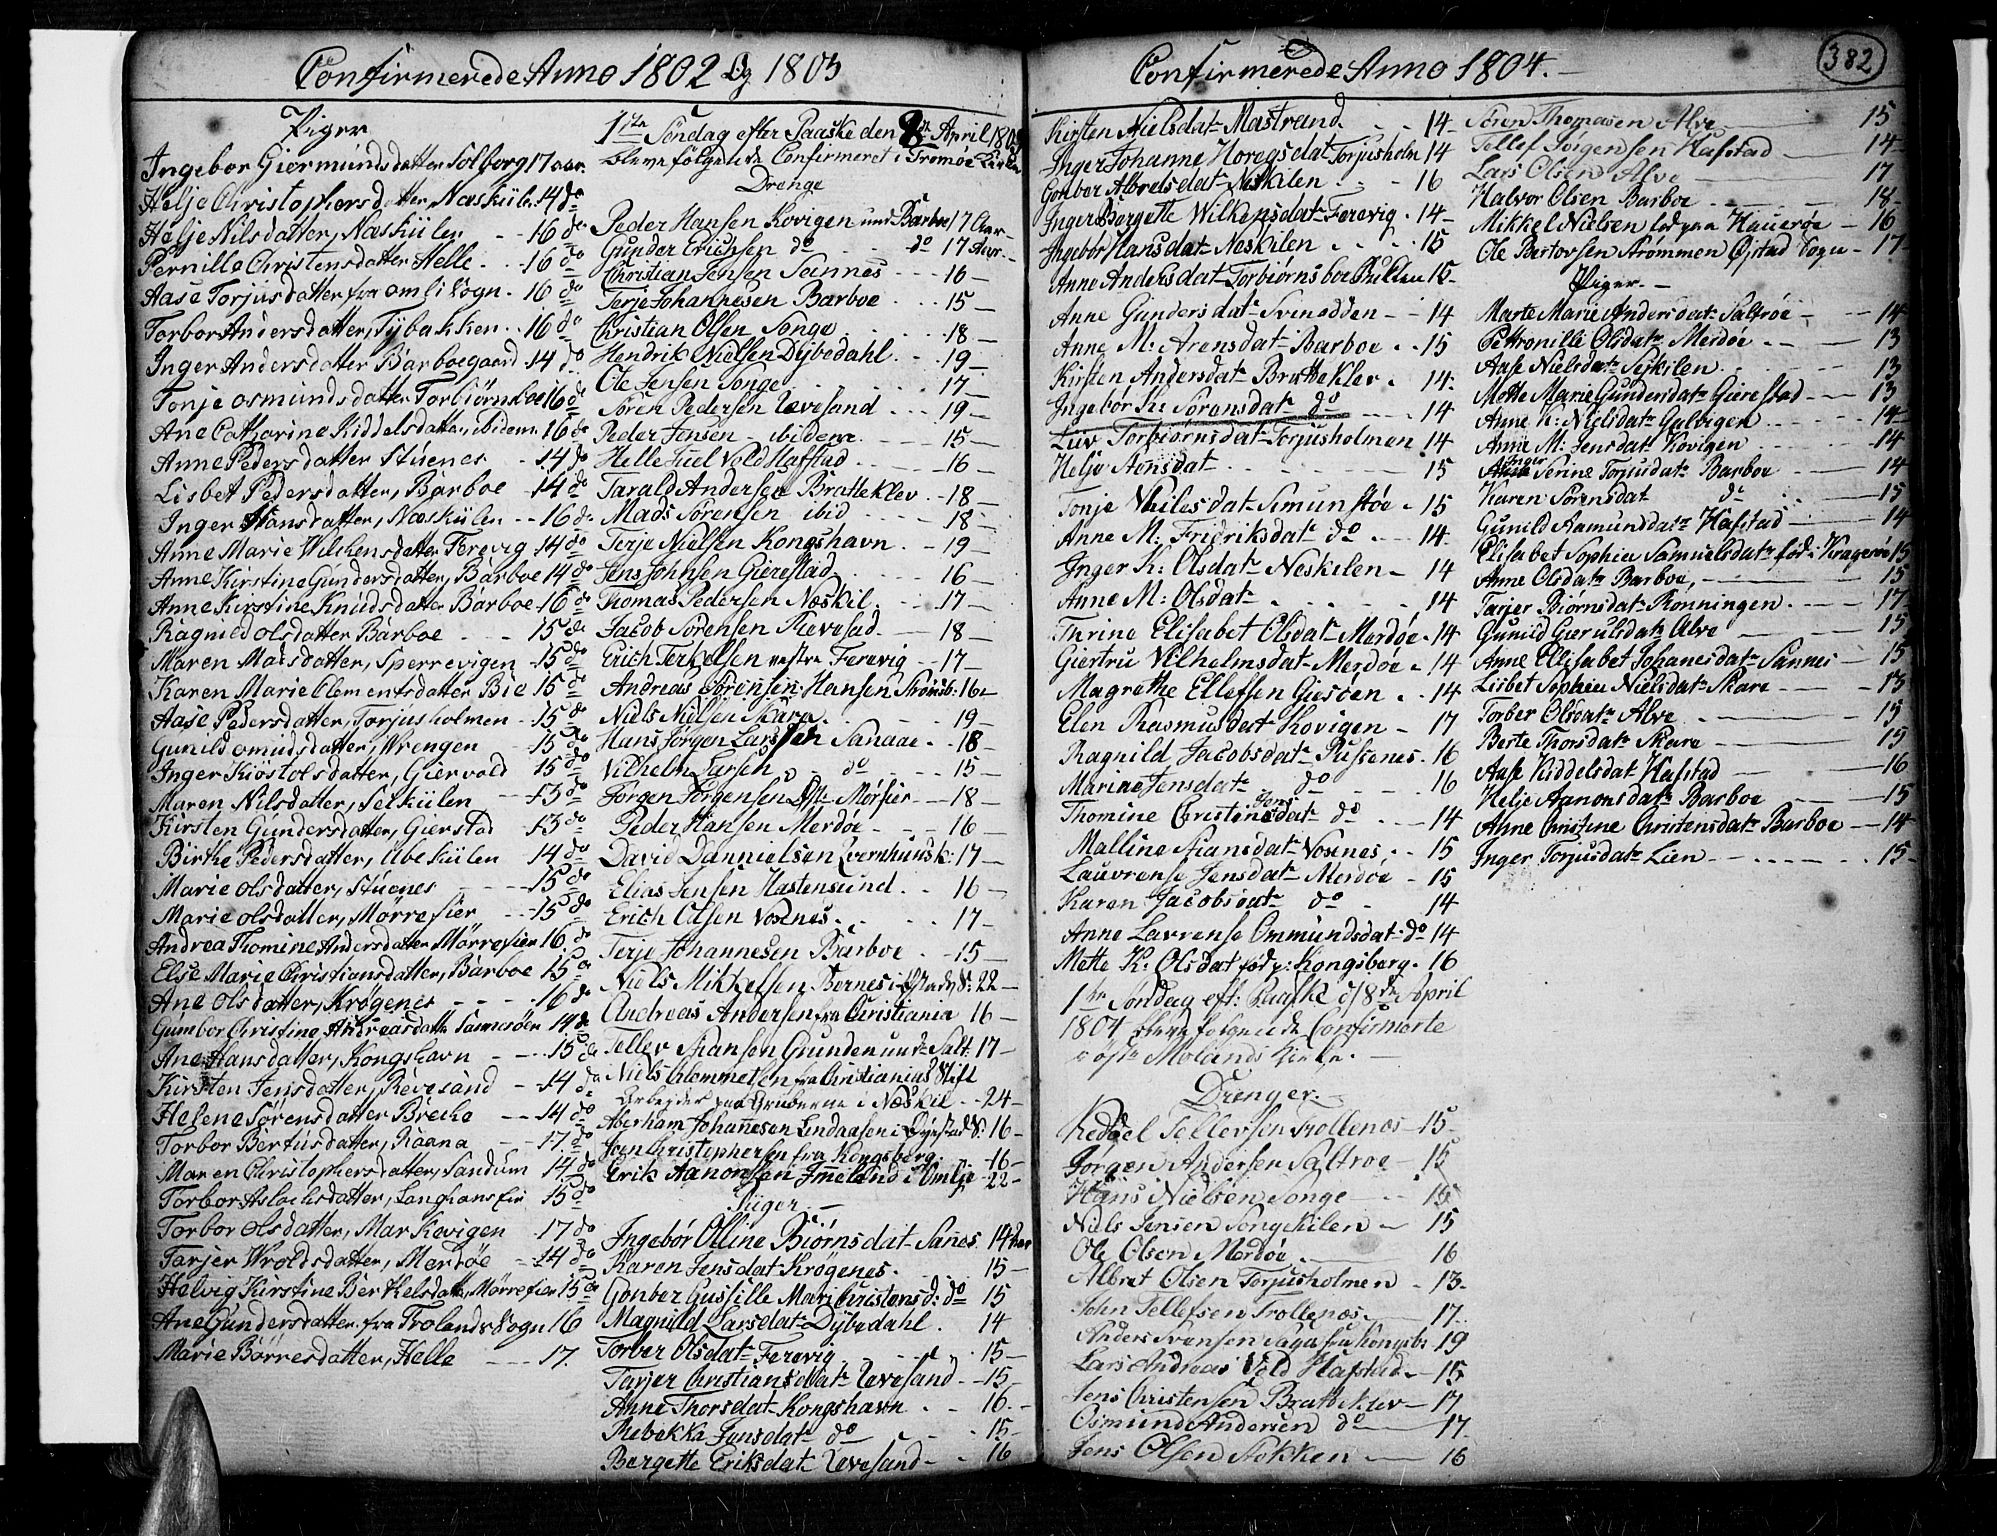 Confirmerede Anno 1802 Og 1803
Piger
Ingebor Giermundsdatter Solborg 17 aar.
Helje Christophersdatter, Næskiilen 14 do
Helje Nilsdatter, Næskiilen -- 16 do
Pernille Christensdatter Helle - 16 do
Aase Torjusdatter fra omli Sogn - 16 do
Torbor Andersdatter, Tÿbakken - 16 do
Inger Andersdatter Barboegaard 14 do
Tonje osmundsdatter Torbiørnsboe 16 do
Ane Catharine Kiddelsdatter, ibidem 16 do
Anne Pedersdatter Stuenes - 14 do
Lisbet Pedersdatter, Barboe - 14 do
Inger Hansdatter, Næskiilen -- 16 do
Anne Marie Wilchensdatter Ferevig 14 do
Anne Kirstine Gundersdatter, Barboe 14 do
Anne Kirstine Knudsdatter Barboe 16 do
Ragnild olsdatter Barboe --- 15 do
Maren Madsdatter, Sperrevigen - 15 do
Karen Marie Clementsdatter Bie 15 do
Aase Pedersdatter, Torjusholmen - 15 do
Gunild omundsdatter, Wrengen - 15 do
Inger Kiøstolsdatter, Giervold 15 do
Maren Nilsdatter, Seikiilen -- 13 do
Kirsten Gundersdatter, Gierstad - 13 do
Birthe Pedersdatter, Ubekiilen 14 do
Marie olsdatter, Stuenes --- 15 do
Marie olsdatter, Mørrefier --- 15 do
Andrea Thomine Andersdatter Mørrefier 16 do
Else Marie Christiansdatter, Barboe 15 do
Ane olsdatter, Krøgenes --- 16 do
Gumbor Christine Andreasdatter Sannesøen 14 do
Ane Hansdatter, Kongshavn --- 15 do
Kirsten Jensdatter, Revesand - 14 do
Helene Sørensdatter Brecke -- 14 do
Torbor Bertusdatter, Raana -- 17 do
Maren Christophersdatter, Sandum 14 do
Torbor Aslachsdatter, Langhansfier 15 do
Torbor olsdatter, Markevigen - 17 do
Tarjer Wroldsdatter, Merdøe - 14 do
Helvig Kirstine Berthelsdatter, Mørrefier 15 do
Ane Gundersdatter fra Frolands Sogn 16
Marie Børresdatter, Helle --- 17.
1ste Søndag efter Paaske den 8de April 1803
bleve følgende Confirmeret i Tromøe Kirke
Drenge
Peder Hansen Kovigen und Barboe 17 Aar -
Gunder Erichsen do - do 17 Aar -
Christian Jensen Sannes --- 16 -
Terje Johannesen Barboe --- 15 -
Christian Olsen Songe --- 18 -
Hendrik Nielsen Dÿbedahl -- 19 -
Ole Jensen Songe --- 17 -
Søren Pedersen Revesand --- 19 -
Peder Jensen ibidem --- 15 -
Helle Juel Vold Hafstad --- 16 -
Tarald Andersen Bratteklev - 18 -
Mads Sørensen ibid --- 18 -
Terje Nielsen Kongshavn - 19 -
Jens Johnsen Gierestad --- 16 -
Thomas Pedersen Næskil -- 17 -
Jacob Sørensen Revesad -- 18 -
Erich Terkelsen vestre Ferevig -- 17 -
Andreas Sørensen Hansen Strømsb: 16 -
Niels Nielsen Skare --- 19 -
Hans Jørgen Larssen Sanaae - 18 -
Vilhelm Larsen do --- 15 -
Jørgen Jørgensen Mørfier -- 18 -
Peder Hansen Merdøe --- 16 -
David Dannielsen 17 -
Elias Jensen Hastensund - 16 -
Erich Olsen Vosenes --- 17 -
Terje Johannesen Barboe - 15 -
Niels Mikkelsen Bernes i Øjestads S: 22 -
Andreas Andersen fra Christiania 16 -
Tellev Hansen Grunden und: Salt: 17 -
Niels Clemmetsen fra Christianias Stift
Arbejder paa Gruberne i Næskil - 24 -
Aberham Johannesen Lindaasen i Øÿestad S: 16 -
Joen Christophersen fra Kongsberg - 16 -
Erik Aanonsen Jmeland i Omlje - 22 -
Piiger -
Ingebor Olline Biørnsdatr Sanes 14 Aar
Karen Jensdat Krøgenes - 15 -
Gonber Gusfille Mari Christens d: do 15
Magnild Larsdat Dÿbedahl - 14
Torber Olsdatr Ferevig --- 15 -
Tarjer Christiansdatr Revesand -- 15 -
Anne Thorsdat Kongshavn -- 16 -
Rebekka Jensdatr do --- 15 -
Bergette Eriksdat Revesand -- 16
Confirmerede Anno 1804. -
382
Kirsten Nielsdatr Mastrand --- 14 -
Inger Johanne Horegsdat Torjusholm 14
Gonber Albretsdat Neskilen --- 16
Inger Bergette Wilkensdat Ferevig - 14 -
Ingebor Hansdat Neskilen --- 15
Anne Andersdat Torbiørnsboe 15 -
Anne Gundersdat Svenodden -- 14
Anne M: Arensdat Barboe -- 15
Kirsten Andersdat Bratteklev - 14 -
Ingebor Sørensdat do --- 14
Liiv Torbiørnsdat Torjusholmen 14
Helje Aonsdat --- 15
Tonje Nilesdat Simunstøe - 15
Anne M: Fridriksdat do --- 14
Inger K: Olsdat Neskilen - 14
Anne M: Olsdat --- 14
Turine Elisabet Olsdatr Merdøe - 14
Giertru Vilhelmsdat Merdøe - 14
Magrethe Ellefsen Giesøen - 14
Elen Rasmusdat Kovigen - 17
Ragnild Jacobsdat Pussenes 16
Marine Jensdat do --- 16
Thomine Christine Jensdat do --- 14
Malline Hansdat Vosenes - 15
Lauvrense Jensdat Merdøe - 15
Karen Jacobsdat do - 14
Anne Lavrense Ommundsdat do 14
Mette K: Olsdat fød p: Kongsberg - 16
1ste Søndag eft: Paaske d 8de April
1804 bleve følgende Confirmerte
i øste Molands Kirke. -
Drenger. -
Keddel Tellevsen Trollenæs 15 -
Jørgen Andersen Saltroe - 15
Hans Nielsen Songe --- 15
Niels Jensen Songekilen - 15
Ole Olsen Merdøe --- 16
Albret Olsen Torjusholmen - 13 -
John Tellefsen Trollenæs -- 17 -
Anders Svensen Saga fra Kongsb: 19
Lars Andreas Vold Hafstad - 15
Jens Christensen Bratteklev - 17
Osmund Andersen do --- 17
Jens Olsen Stokken --- 16
Søren Thomasen Alve --- 15
Tellef Jørgensen Hafstad --- 14
Lars Olsen Alve --- 17
Halvor Olsen Barboe --- 18
Mikkel Nielsen fød paa Haverøe - 16
Ole Bertovsen Strømmen Øjstad Sogn - 17
Piger. -
Marte Marie Andersdat Saltrøe --- 14
Petronille Olsdatr Merdøe --- 13
Aase Nielsdatr Sejkilen --- 13
Mette Marie Gundersdat Gierestad -- 13
Anne K: Nielsdat Galvigen --- 14
Anne M: Jensdat Kovigen --- 14
Inger Serine Torjusdatr Barboe --- 14
Karen Sørensdat do --- 15
Gunild Aamundsdatr Hafstad --- 14
Elisabet Sophie Samuelsdatr fød i Kragerøe 15
Anne Olsdatr Barboe, --- 15
Tarjer Biørnsdat Rønningen --- 17
Gunild Gierulsdatr Alve --- 15
Anne Elisabet Johanesdatr Sannes - 15
Lisbet Sophie Nielsdatr Skare --- 15
Torber Olsdatr Alve --- 15
Berte Thorsdatr Skare --- 15
Aase Kiddelsdat Hafstad --- 16
Helje Aanonsdatr Barboe --- 15
Anne Christine Christensdatr Barboe -- 14
Inger Torjusdatr Lien --- 15 -